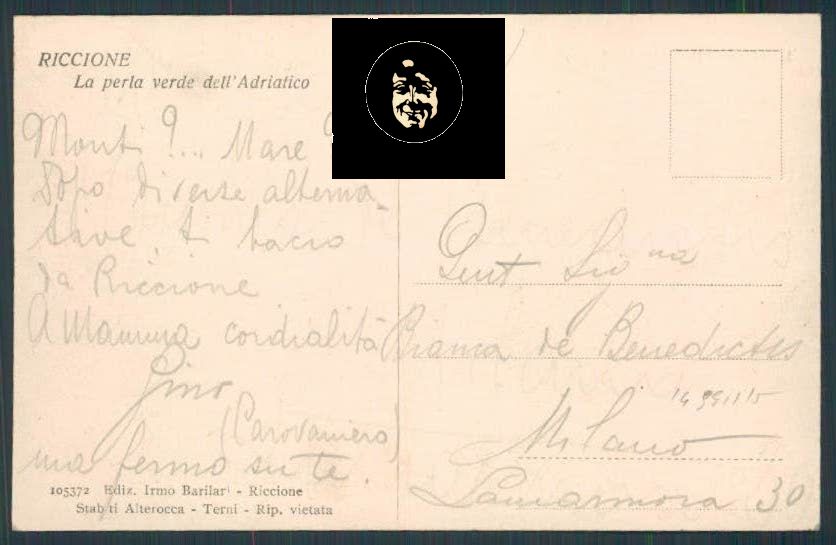 RICCIONE
La perla verde dell'Adriatico
Monti ?... Mare ?
Dopo diverse alterna-
tive, ti bacio
da Riccione
A Mamma cordialità
Gino
(Carovaniero)
ma fermo su te.
105372 Ediz. Irmo Barilari - Riccione
Stab ti Alterocca - Terni - Rip. vietata
Gent. Sig na
Bianca de Benedictis
Milano
Lamarmora 30